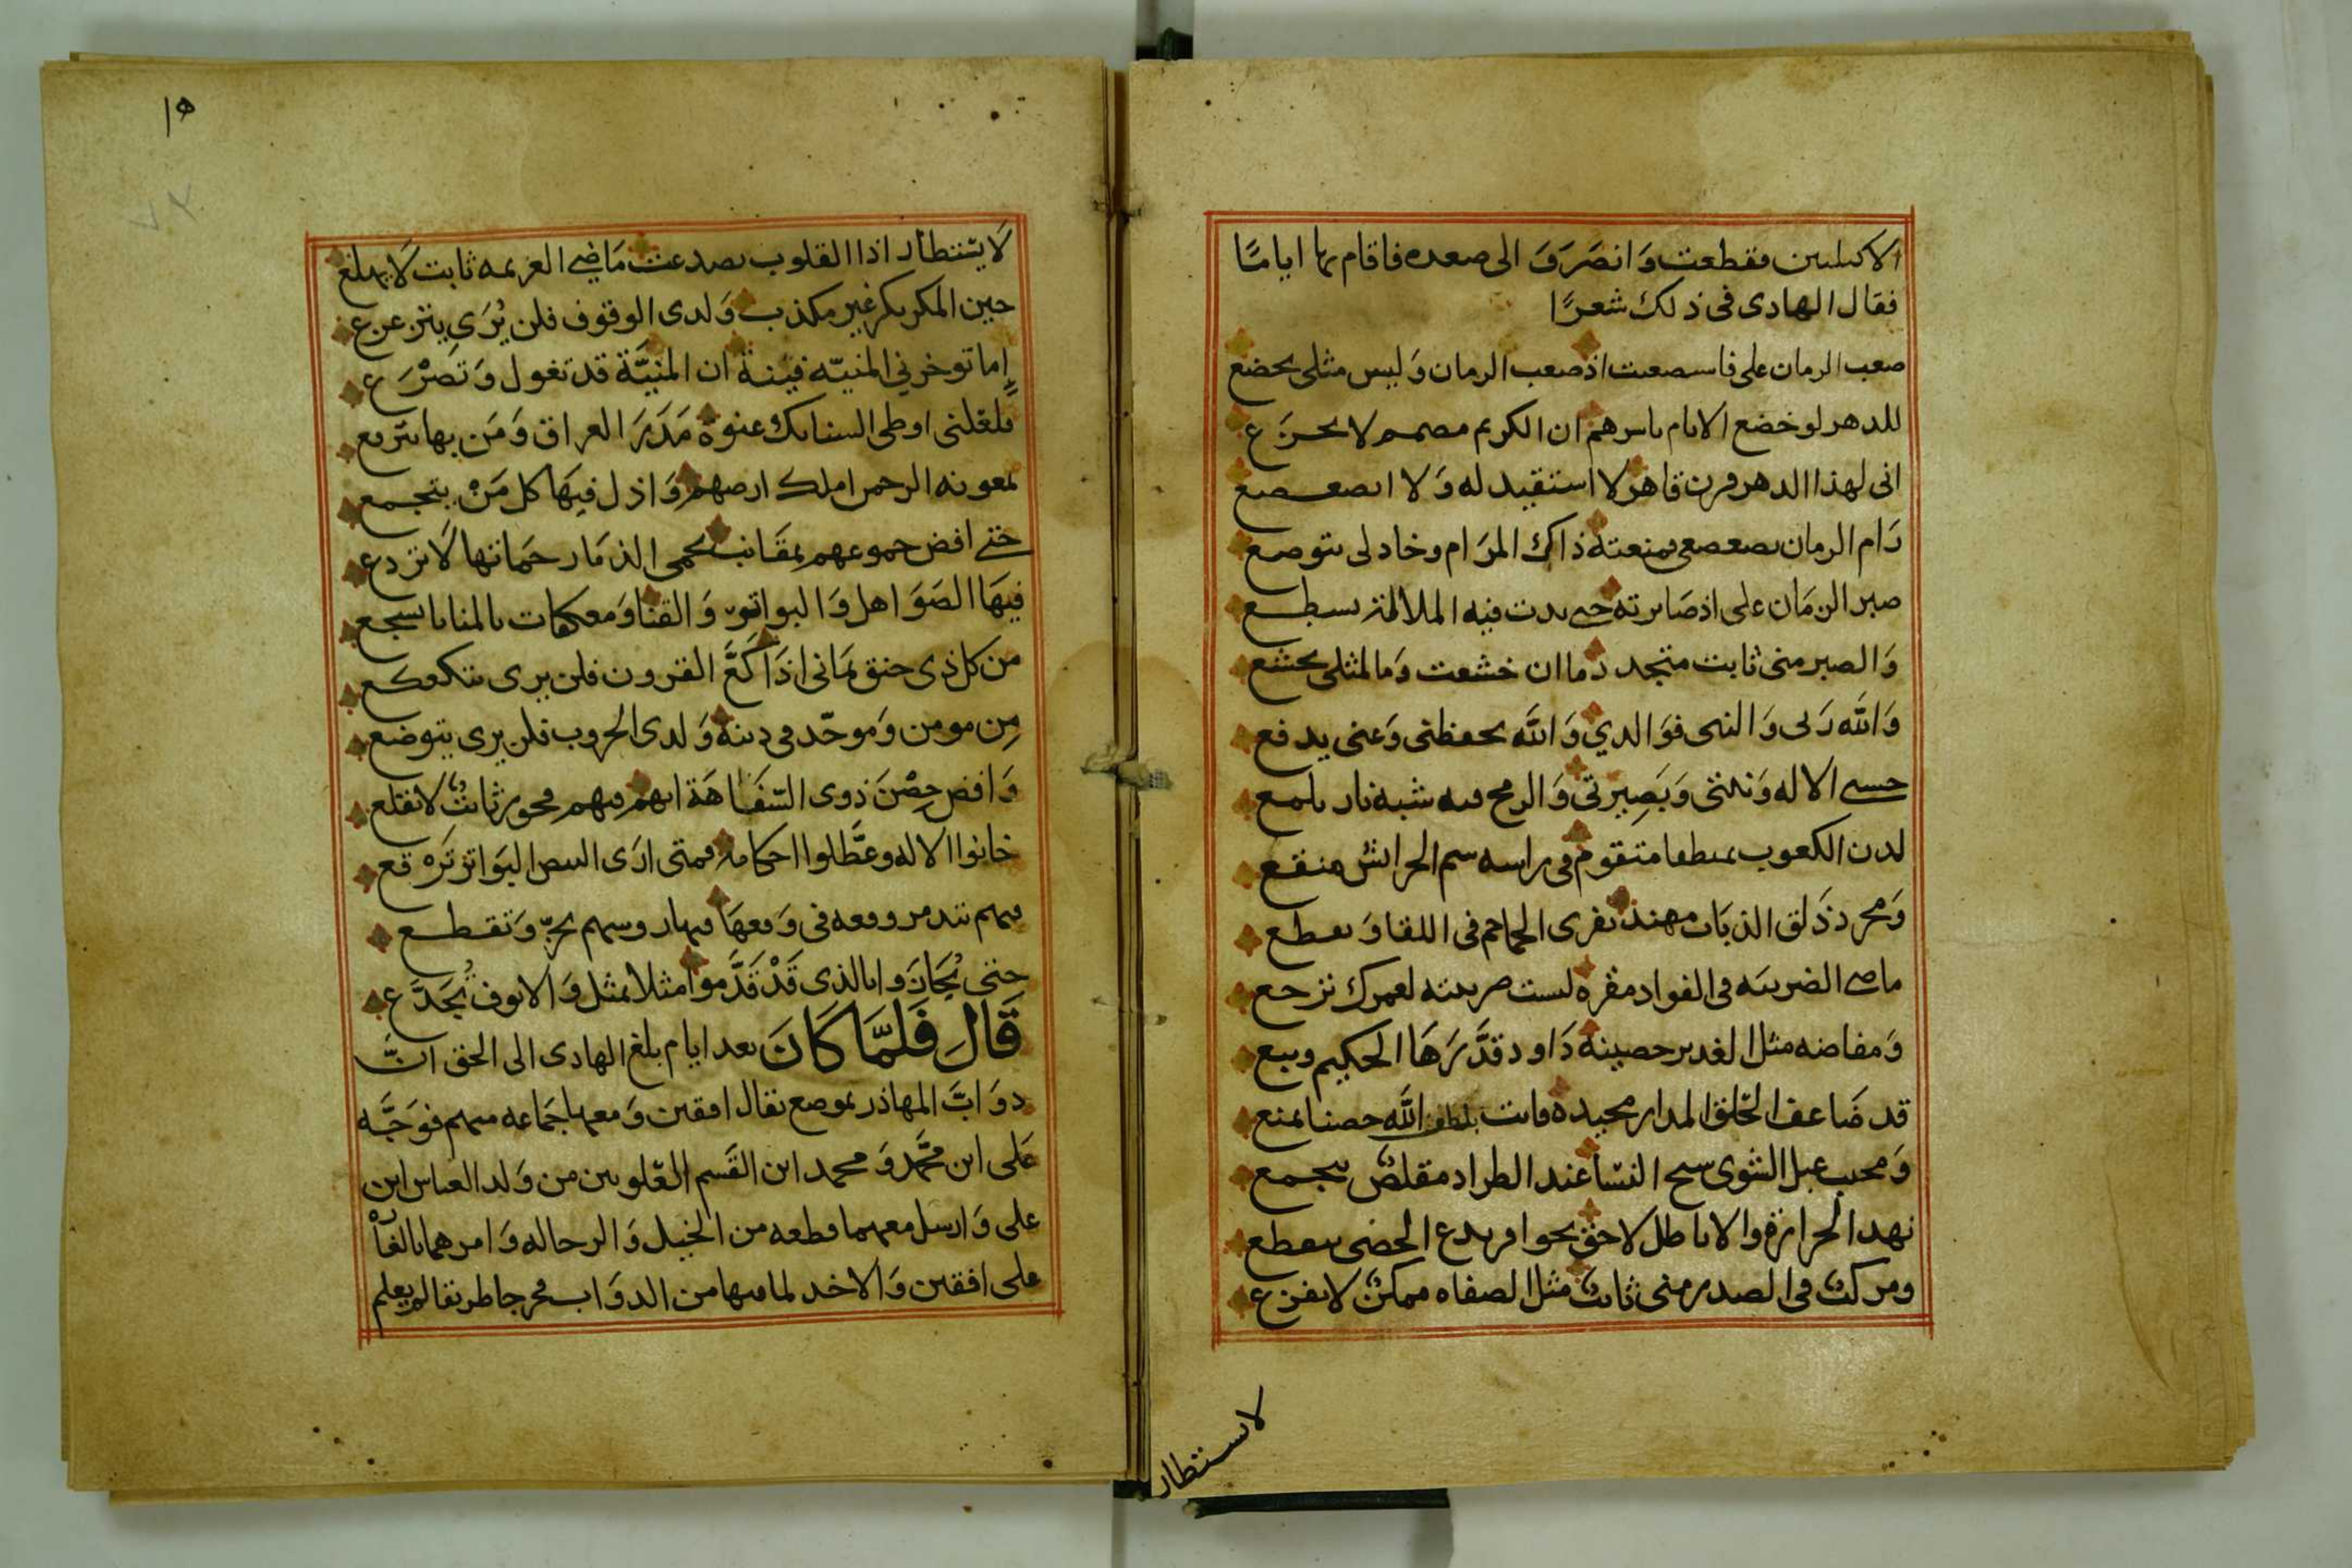 الاكيليين فقطعت وَانصَرَفَ الى صعده فاقام بها ايامًا
فقال الهادى فى ذلك شعرًا
صعب الزمان على فاستصعبت اذ صعب الزمان وَليس مثلى يخضع
للدهر لو خضع الانام باسرهم ان الكريم مصمم لا يجزَع
انى لهذا الدهر قرن قاهر لا استقيد له وَلا اتضعضع
رَام الزمان تضعضعى فمنعته ذاك المرَام وخاد لى يتوضع
صبر الزمَان على اذ صَابرته حتى بدت فيه الملالة تسطع
وَالصبر منى ثابت متجدد ما ان خشعت وَما لمثلى يخشع
وَالله رَبى وَالنبى فوَالدي وَالله يحفظنى وَعنى يدفع
حسبى الاله وَنيتى وَبَصِيرتى وَالرمح فيه شبه نار يلمع
لدن الكعوب متقوم فى راسه سم الحرائش منقع
وَمجرد ذَلق الذبَاب مهند يفرى الجماجم فى اللقا وَيقطع
ماضى الضريبَه فى الفواد مقره ليست ضريبته لعمرك ترجع
وَمفاضه مثل الغدير حصينة دَاود قدَّرَهَا الحكيم وتبع
قد ضَاعف الحَلق المدار مجيده فاتت بلطف الله حصنا يمنع
وَمحبب عبل الشوى سنح النسَا عند الطراد مقلصٌ يتجمع
نهد الجزارة والاباطل لاحق بحوافر تدع الحصى يتقطع
ومركبٌ فى الصدر منى ثابتٌ مثل الصفاه ممكنٌ لا يفزع
لا يستطار
١٥
٧٢
لَا يسْتطار اذا القلوب تصدعت مَاضي العزيمه ثابت لَا يهلع
حين المكر يكر غير مكذب وَلدى الوقوف فلن يُرَى يتزعزع
إما توخرني المنيّه فيْنة ان المنيَّة قد تغول وَتَصْرَع
فلعلنى اوطى السنابك عنوة مَدَرَ العراق وَمَن بها يترفع
بمعونه الرحمن املك ارضهم وَاذل فيهَا كل مَنْ يتجمع
حتى افض جموعهم بمقَانب تحمى الذمَار حمَاتها لَا تردع
فيهَا الصَوَاهل وَالبواتر وَالقنا وَمعكمات بالمنايا تسجع
من كل ذى حنق يمَانى اذَا كَعَّ القرون فلن يرى يتكعكع
مِن مومن وَموحّد فى دينه وَلدى الحروب فلن يرى يتوضع
وَافض حِصْنَ ذوى السّفَاهَة انهم فيهم فجور ثابتٌ لا يقلع
خانوا الاله وعطَّلوا احكامه فمتى ارَى البيض البَواتر تَرَه قع
فيهم تتدمر وقعه فى وَقعهَا فيها روسهم بحزّ وَتقطع
حتى يُجَازَوا بالذى قَدْ قَدَّموا مثلا بمثل وَالانوف تُجَدَّع
قَالَ فَلمَّا كَانَ بعد ايام بلغ الهادى الى الحق انَّ
دوَابَّ المهاذر بموضع يقال افقين وَمعها جمَاعه منهم فوَجَّه
عَلى ابن محَّمد وَمحمد ابن القَسم العَلويين من وَلد العباس ابن
على وَارسل معهما قطعه من الخيل وَالرجاله وَامرهما بالغارْ
على افقين وَالاخذ لما فيها من الدوَاب فخرجا طريقا لم يعلم